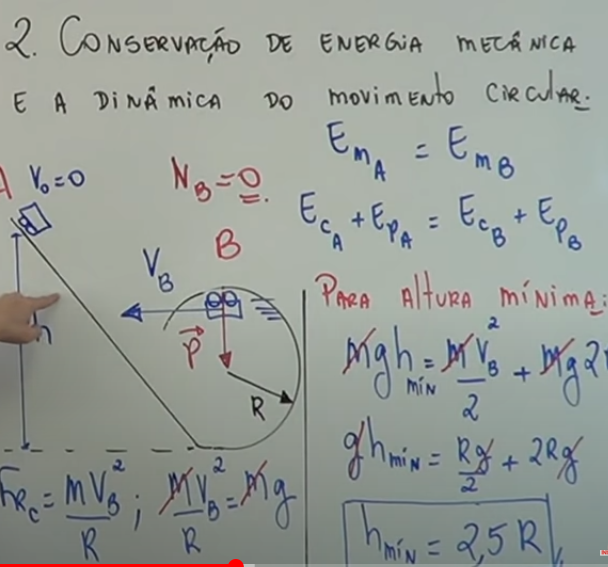 2. CONSERVAÇÃO DE ENERGIA MECÂNICA
E A DINÂMICA DO MOVIMENTO CIRCULAR:
E_mA = E_mB
E_cA + E_pA = E_cB + E_pB
A V₀=0
N_B = 0.
B
V_B
P
R
h
PARA ALTURA MÍNIMA:
mgh_mín = mV_B²/2 + mg2R
gh_mín = Rg/2 + 2Rg
h_mín = 2,5 R
F_Rc = mV_B²/R ; mV_B²/R = mg